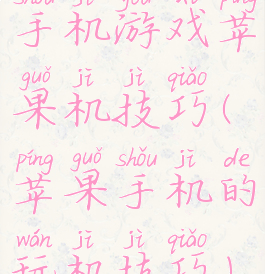 shǒu jī yóu xì píng
手机游戏苹
guǒ jī jì qiǎo
果机技巧(
píng guǒ shǒu jī de
苹果手机的
wán jī jì qiǎo
玩机技巧)